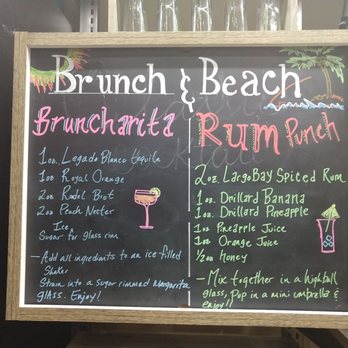 Brunch & Beach
Bruncharita
1 oz. Legado Blanco tequila
1 oz. Royal Orange
2 oz Radel Brot
2 oz Peach Necter
Ice
Sugar for glass rim
- Add all ingredients to an ice filled
Shaker
Strain into a sugar rimmed Margarita
glass. Enjoy!
Rum Punch
2 oz. Largo Bay Spiced Rum
1 oz. Drillard Banana
1 oz. Drillard Pineapple
1 oz Pineapple Juice
1 oz Orange Juice
1/2 oz honey
- Mix together in a highball
glass, Pop in a mini umbrella &
enjoy!!